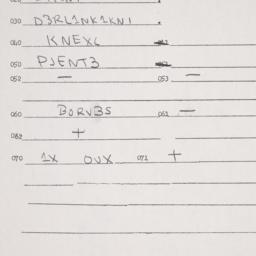 030 D3RL1NK1KN1 .
040 KNEXC
050 PJENT3
052 — 053 —
060 BORVBS 061 —
062 +
070 1X OUX 071 +